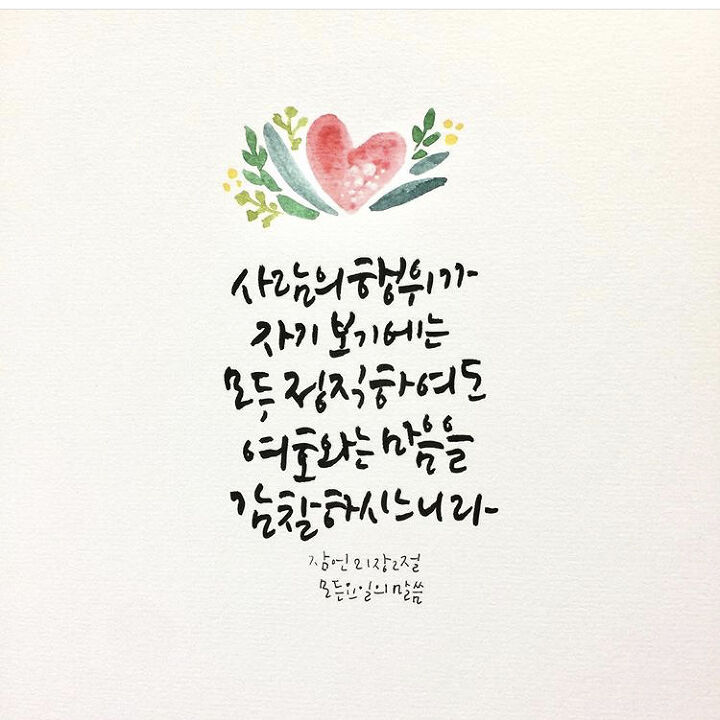 사람의 행위가
자기 보기에는
모두 정직하여도
여호와는 마음을
감찰하시느니라
잠언 21장 2절
모든요일의 말씀